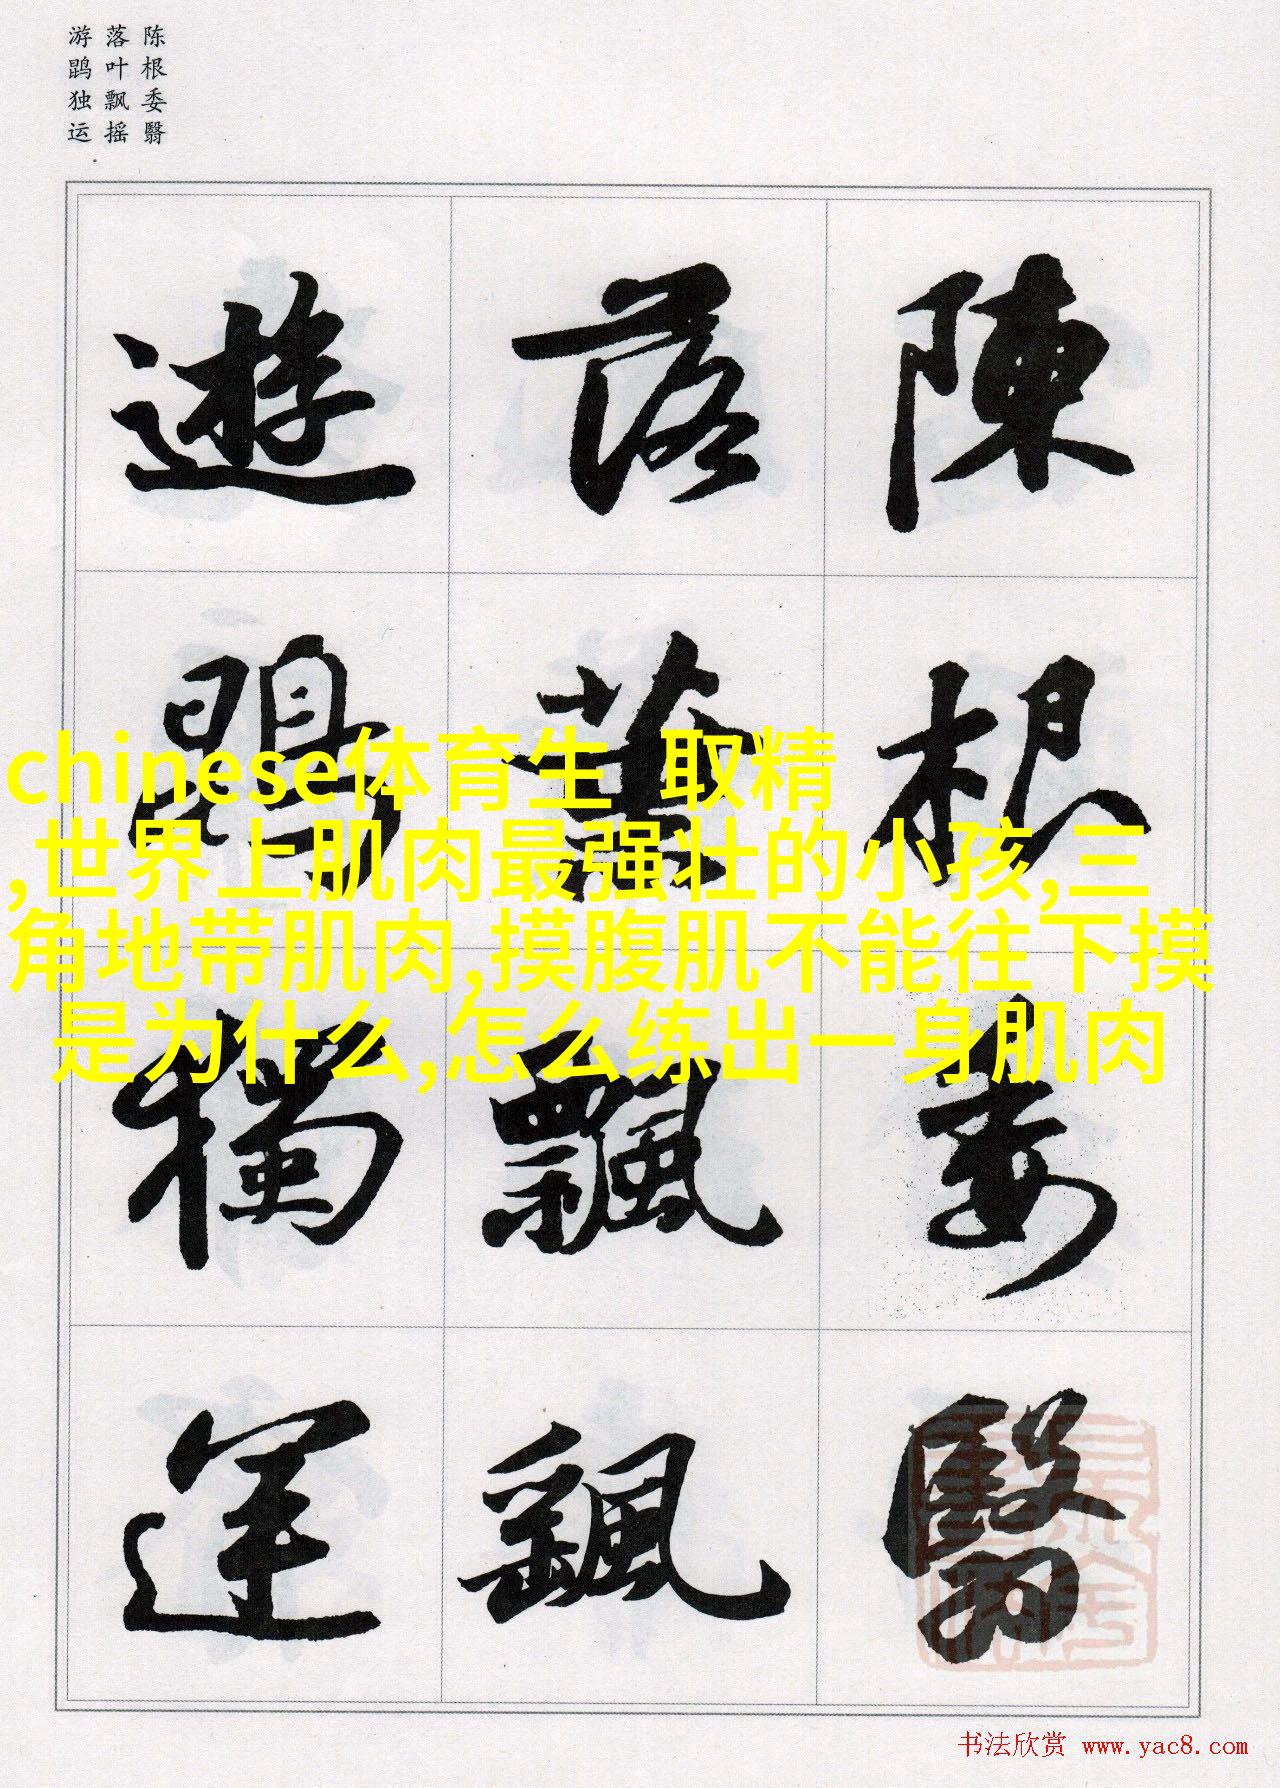 陈根委翳
落叶飘摇
游鹍独运
陳根委翳
落葉飄飖
遊鵾獨運
chinese体育生 取精
,世界上肌肉最强壮的小孩,三
角地带肌肉,摸腹肌不能往下摸
是为什么,怎么练出一身肌肉
书法欣赏 www.yac8.com